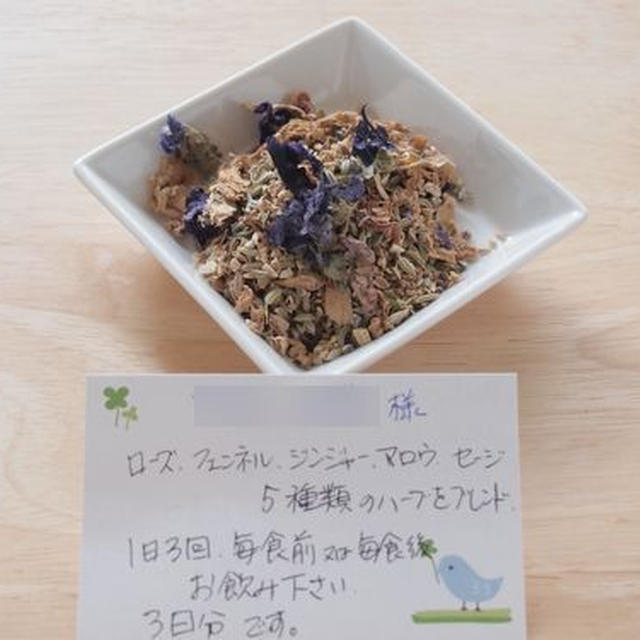 様
ローズ、フェンネル、ジンジャー、マロウ、セージ
5種類のハーブをブレンド.
1日3回、毎食前又は毎食後
お飲み下さい.
3日分です。